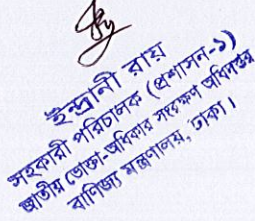 ইন্দ্রানী রায়
সহকারী পরিচালক (প্রশাসন-১)
জাতীয় ভোক্তা-অধিকার সংরক্ষণ অধিদপ্তর
বাণিজ্য মন্ত্রণালয়, ঢাকা।